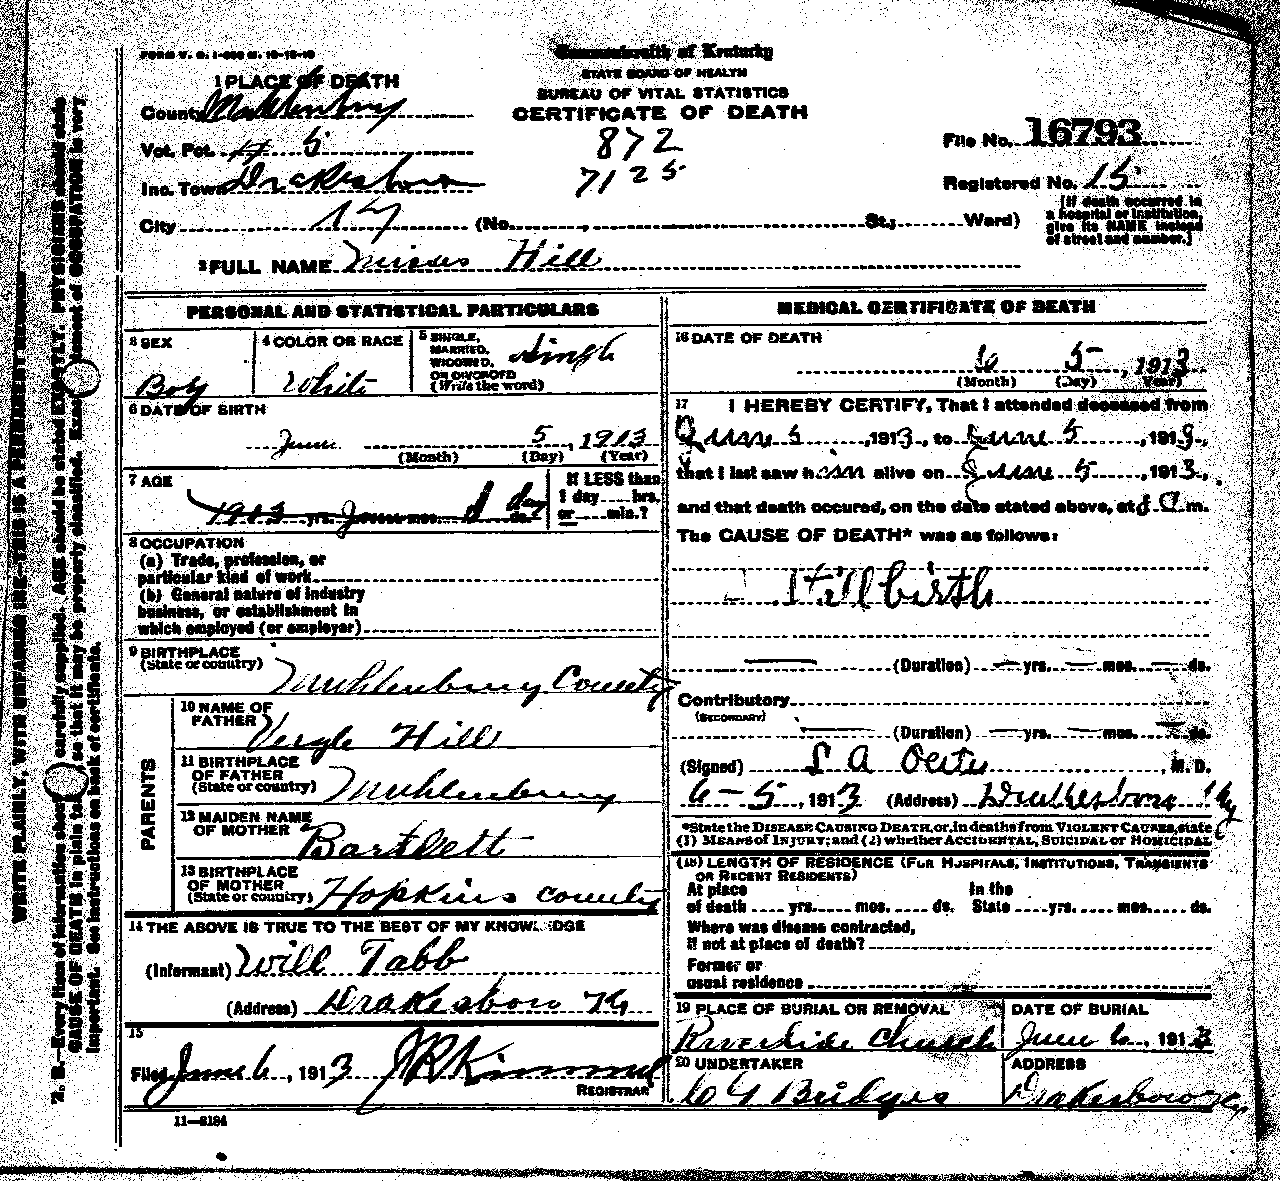 FORM V. S. 1-
Commonwealth of Kentucky
STATE BOARD OF HEALTH
BUREAU OF VITAL STATISTICS
CERTIFICATE OF DEATH
1 PLACE OF DEATH
County Muhlenburg
Vot. Pct. 5
Inc. Town Drakesboro
City (No. St.; Ward)
872
7125
File No. 16793
Registered No. 15
[If death occurred in
a hospital or institution,
give its NAME instead
of street and number.]
2 FULL NAME Hill
PERSONAL AND STATISTICAL PARTICULARS
3 SEX
Boy
4 COLOR OR RACE
White
5 SINGLE,
MARRIED,
WIDOWED,
OR DIVORCED
(Write the word)
Single
6 DATE OF BIRTH
June 5, 1913
(Month) (Day) (Year)
7 AGE
1913 yrs. June mos. 1 day ds.
If LESS than
1 day hrs.
or min.?
8 OCCUPATION
(a) Trade, profession, or
particular kind of work
(b) General nature of industry
business, or establishment in
which employed (or employer)
9 BIRTHPLACE
(State or country)
Muhlenburg County
PARENTS
10 NAME OF
FATHER
Vergle Hill
11 BIRTHPLACE
OF FATHER
(State or country)
Muhlenburg
12 MAIDEN NAME
OF MOTHER
Bartlett
13 BIRTHPLACE
OF MOTHER
(State or country)
Hopkins county
14 THE ABOVE IS TRUE TO THE BEST OF MY KNOWLEDGE
(Informant) Will Tabb
(Address) Drakesboro Ky
15
Filed June 6, 1913 JR Kimmel
REGISTRAR
11-3184
MEDICAL CERTIFICATE OF DEATH
16 DATE OF DEATH
6 5, 1913
(Month) (Day) (Year)
17 I HEREBY CERTIFY, That I attended deceased from
June 5, 1913, to June 5, 1913,
that I last saw him alive on June 5, 1913,
and that death occured, on the date stated above, at m.
The CAUSE OF DEATH* was as follows:
Stillbirth
(Duration) yrs. mos. ds.
Contributory
(SECONDARY)
(Duration) yrs. mos. ds.
(Signed) L A , M. D.
6-5, 1913 (Address) Drakesboro Ky
*State the DISEASE CAUSING DEATH, or, in deaths from VIOLENT CAUSES, state
(1) MEANS of INJURY; and (2) whether ACCIDENTAL, SUICIDAL or HOMICIDAL
(18) LENGTH OF RESIDENCE (FOR HOSPITALS, INSTITUTIONS, TRANSIENTS
OR RECENT RESIDENTS)
At place In the
of death yrs. mos. ds. State yrs. mos. ds.
Where was disease contracted,
if not at place of death?
Former or
usual residence
19 PLACE OF BURIAL OR REMOVAL
Riverside Church
DATE OF BURIAL
June 6, 1913
20 UNDERTAKER
Bridges
ADDRESS
Drakesboro Ky
WRITE PLAINLY, WITH UNFADING INK—THIS IS A PERMANENT RECORD
N. B.—Every item of information should carefully supplied. AGE should be stated EXACTLY. PHYSICIANS should state
CAUSE OF DEATH in plain so that it may be properly classified. Exact of OCCUPATION is very
important. See instructions on back of certificate.